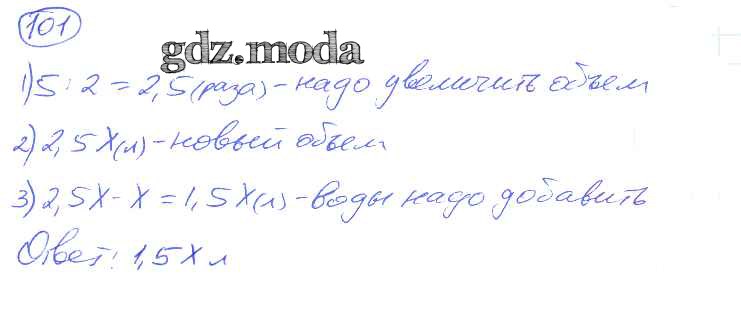 101
gdz.moda
1) 5 : 2 = 2,5 (раза) - надо увеличить объем
2) 2,5х (л) - новый объем
3) 2,5х - х = 1,5х (л) - воды надо добавить
Ответ: 1,5х л